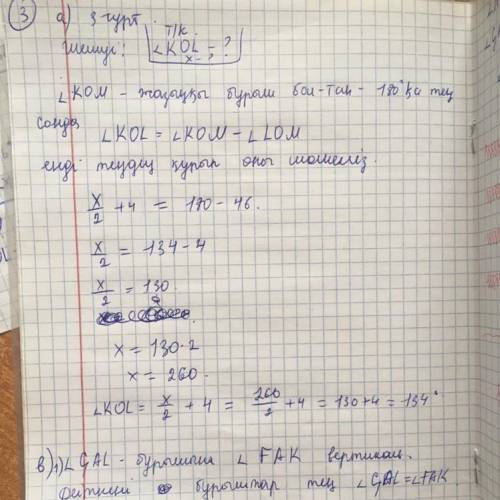 ③ а) 3-сурет.
Шешуі: Т/к. ∠KOL - ?
x - ?
∠KOM - жазыңқы бұрыш бол-тан - 180° қа тең
сонда ∠KOL = ∠KOM - ∠LOM
енді теңдеу құрып оны шешеміз.
x/2 + 4 = 180 - 46.
x/2 = 134 - 4
x/2 = 130.
x = 130·2
x = 260.
∠KOL = x/2 + 4 = 260/2 + 4 = 130+4 = 134°
в) 1) ∠GAL - бұрышына ∠FAK вертикал.
бұрыштар тең ∠GAL = ∠FAK